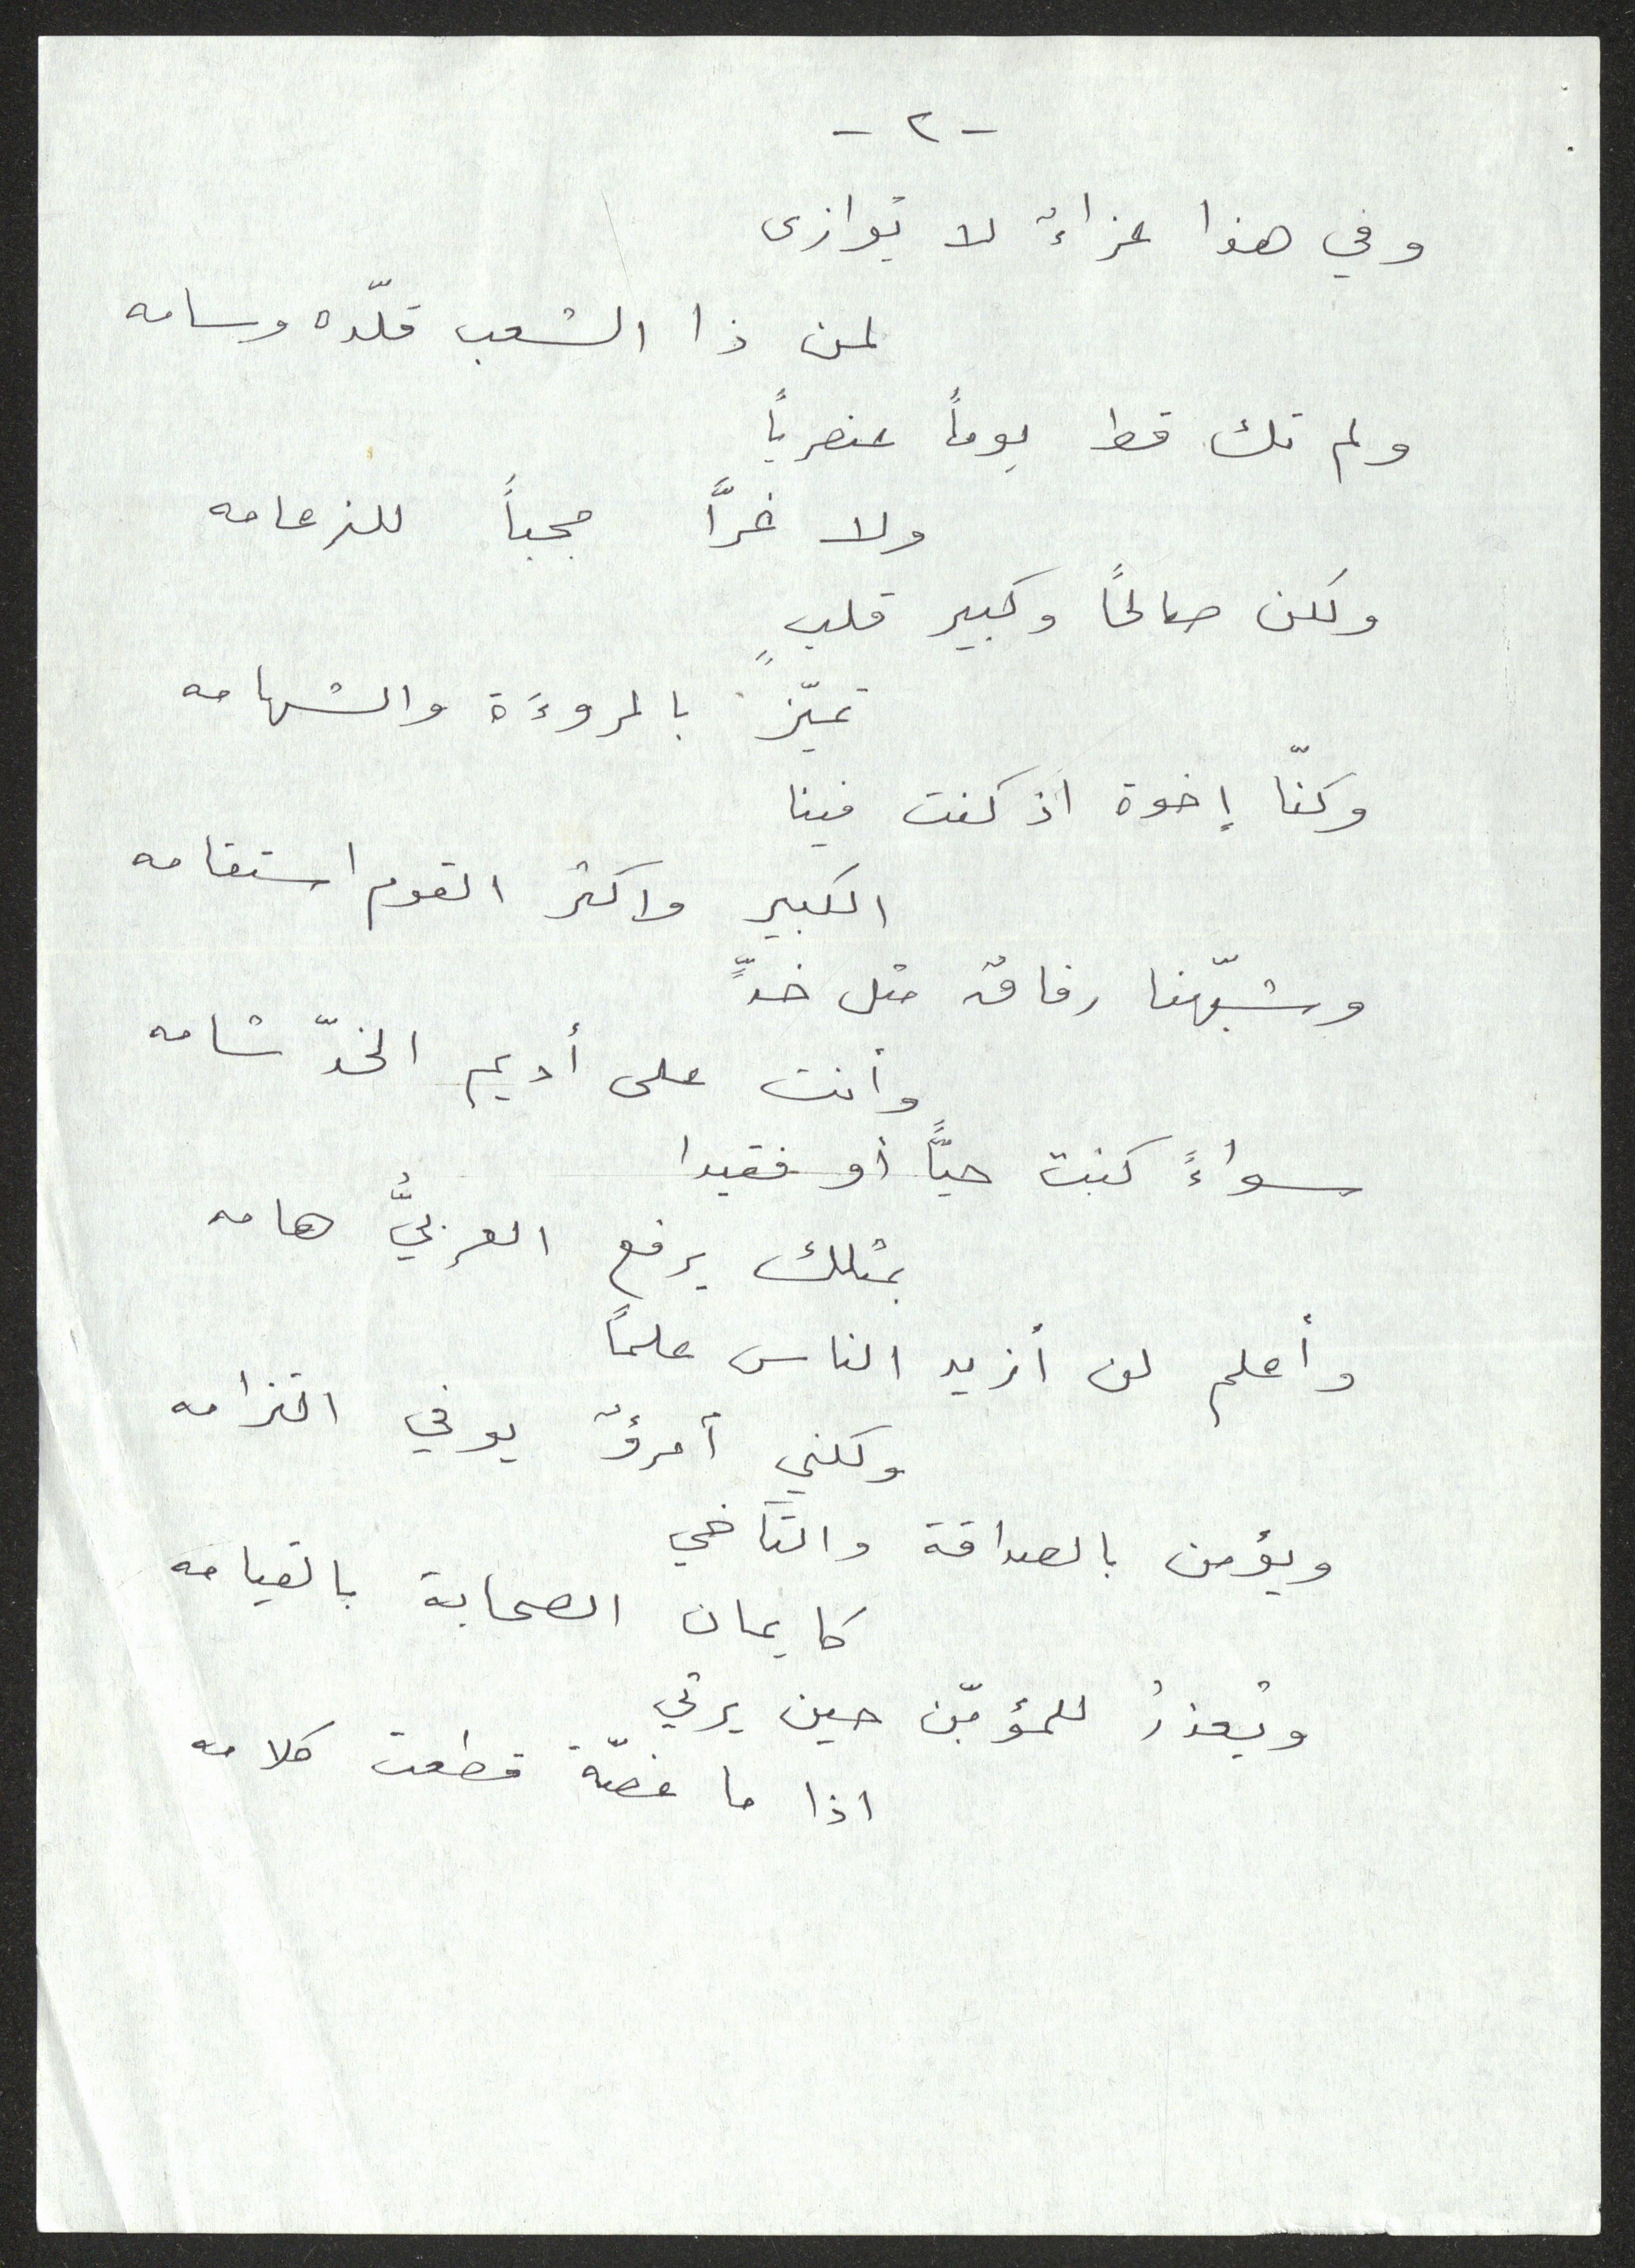 - ٢ -
وفي هذا عزاءٌ لا يُوازى
لمن ذا الشعب قلّده وسامه
ولم تك قط يوماً عنصرياً
ولا غرَّاً محباً للزعامه
ولكن صالحاً وكبير قلبٍ
تميّز بالمروءَة والشهامه
وكنّا إخوة اذ كنت فينا
الكبير واكثر القوم استقامه
وشبّهنا رفاقٌ مثل خدٍّ
وأنت على أديم الخدّ شامه
سواءً كنت حيّاً أو فقيدا
بمثلك يرفع العربيُّ هامه
وأعلم لن أزيد الناس علماً
ولكني أمرؤٌ يوفي التزامه
ويؤمن بالصداقة والتآخي
كايمان الصحابة بالقيامه
ويُعذرُ للمؤبّن حين يرثي
اذا ما غصّة قطعت كلامه